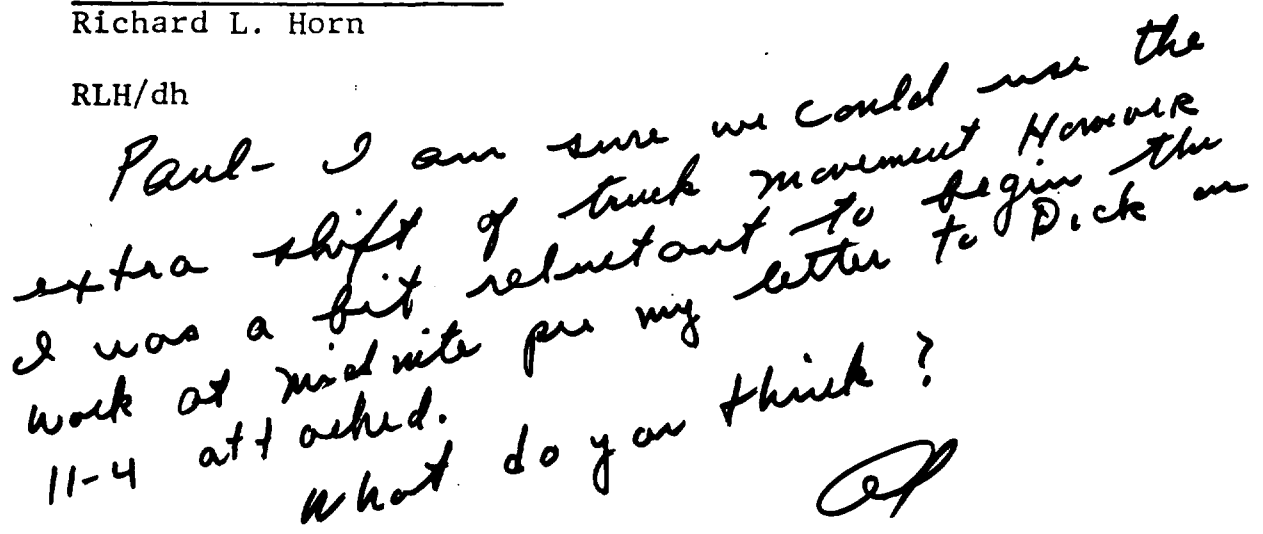 Richard L. Horn
RLH/dh
Paul- I am sure we could use the
extra shift of truck movement However
I was a bit reluctant to begin the
work at midnite per my letter to Dick on
11-4 attached.
What do you think?